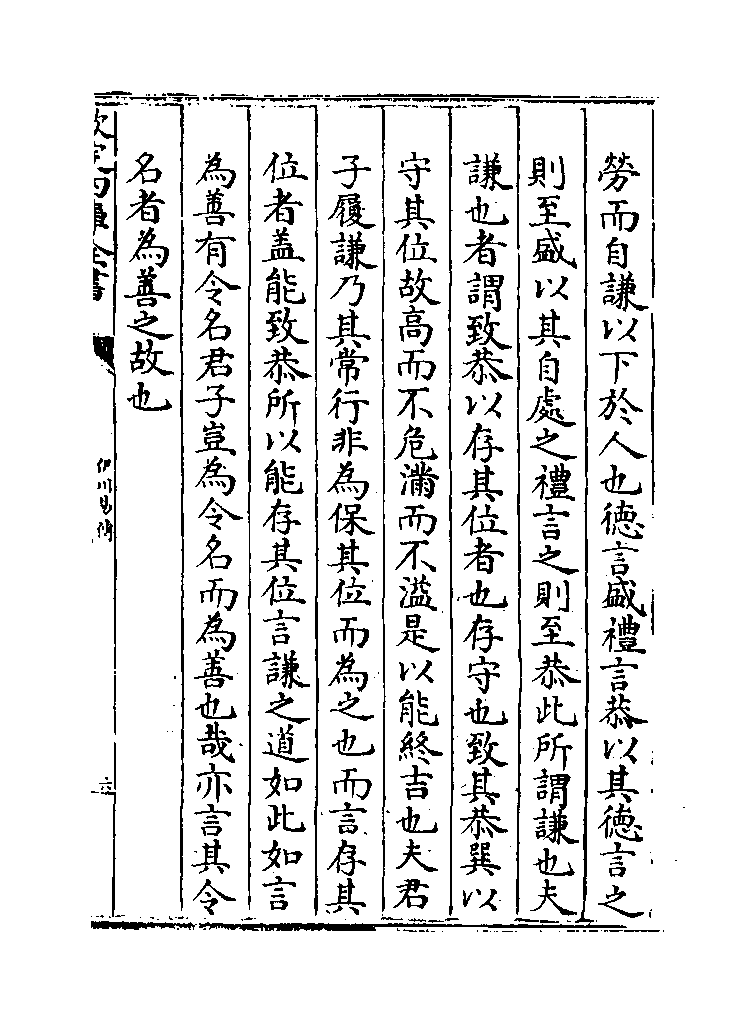 勞而自謙以下於人也徳言盛禮言恭以其徳言之
則至盛以其自處之禮言之則至恭此所謂謙也夫
謙也者謂致恭以存其位者也存守也致其恭巽以
守其位故高而不危滿而不溢是以能終吉也夫君
子履謙乃其常行非為保其位而為之也而言存其
位者盖能致恭所以能存其位言謙之道如此如言
為善有令名君子豈為令名而為善也哉亦言其令
名者為善之故也
欽定四庫全書
伊川易傳
六